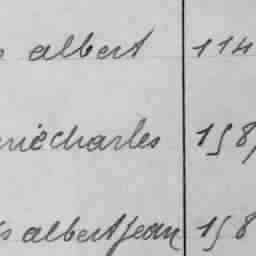 s albert 114
riécharles 158
s albertjean 158